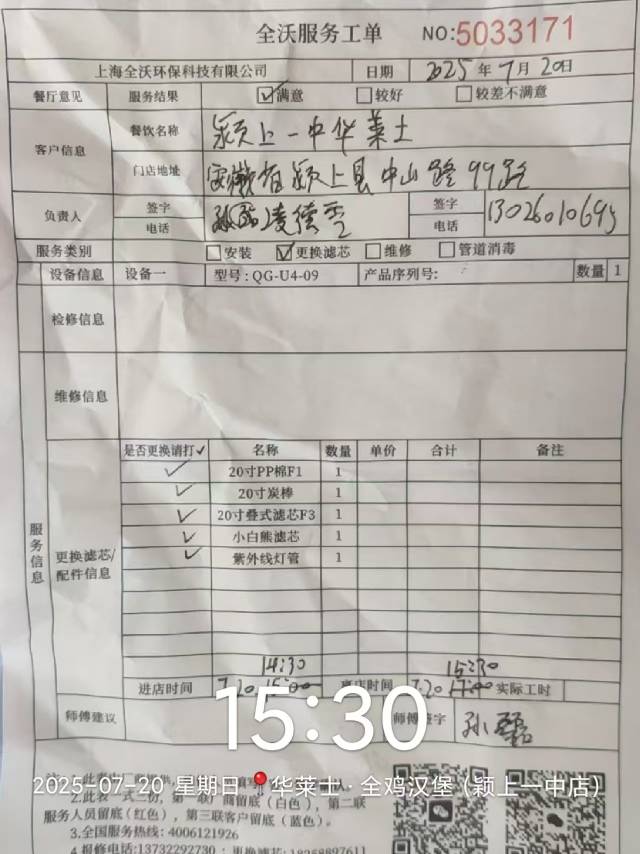 全沃服务工单 NO:5033171
上海全沃环保科技有限公司 日期 2025年7月20日
餐厅意见 服务结果 ☑满意 □较好 □较差不满意
客户信息 餐饮名称 颍上一中华莱士
门店地址 安徽省颍上县中山路99号
负责人 签字 电话 签字 电话 13026010695
服务类别 □安装 ☑更换滤芯 □维修 □管道消毒
设备信息 设备一 型号:QG-U4-09 产品序列号: 数量 1
检修信息
维修信息
服务信息
更换滤芯/配件信息
是否更换请打✓ 名称 数量 单价 合计 备注
✓ 20寸PP棉F1 1
✓ 20寸炭棒 1
✓ 20寸叠式滤芯F3 1
✓ 小白熊滤芯 1
✓ 紫外线灯管 1
14:30 15:30
进店时间 7.20 15:00 离店时间 7.20 17:00 实际工时
师傅建议 师傅签字 孙磊
15:30
2025-07-20 星期日 华莱士·全鸡汉堡（颍上一中店）
2.此表一式三份，第一联厂商留底（白色），第二联
服务人员留底(红色)，第三联客户留底（蓝色）。
3.全国服务热线: 4006121926
4.报修电话:13732292730